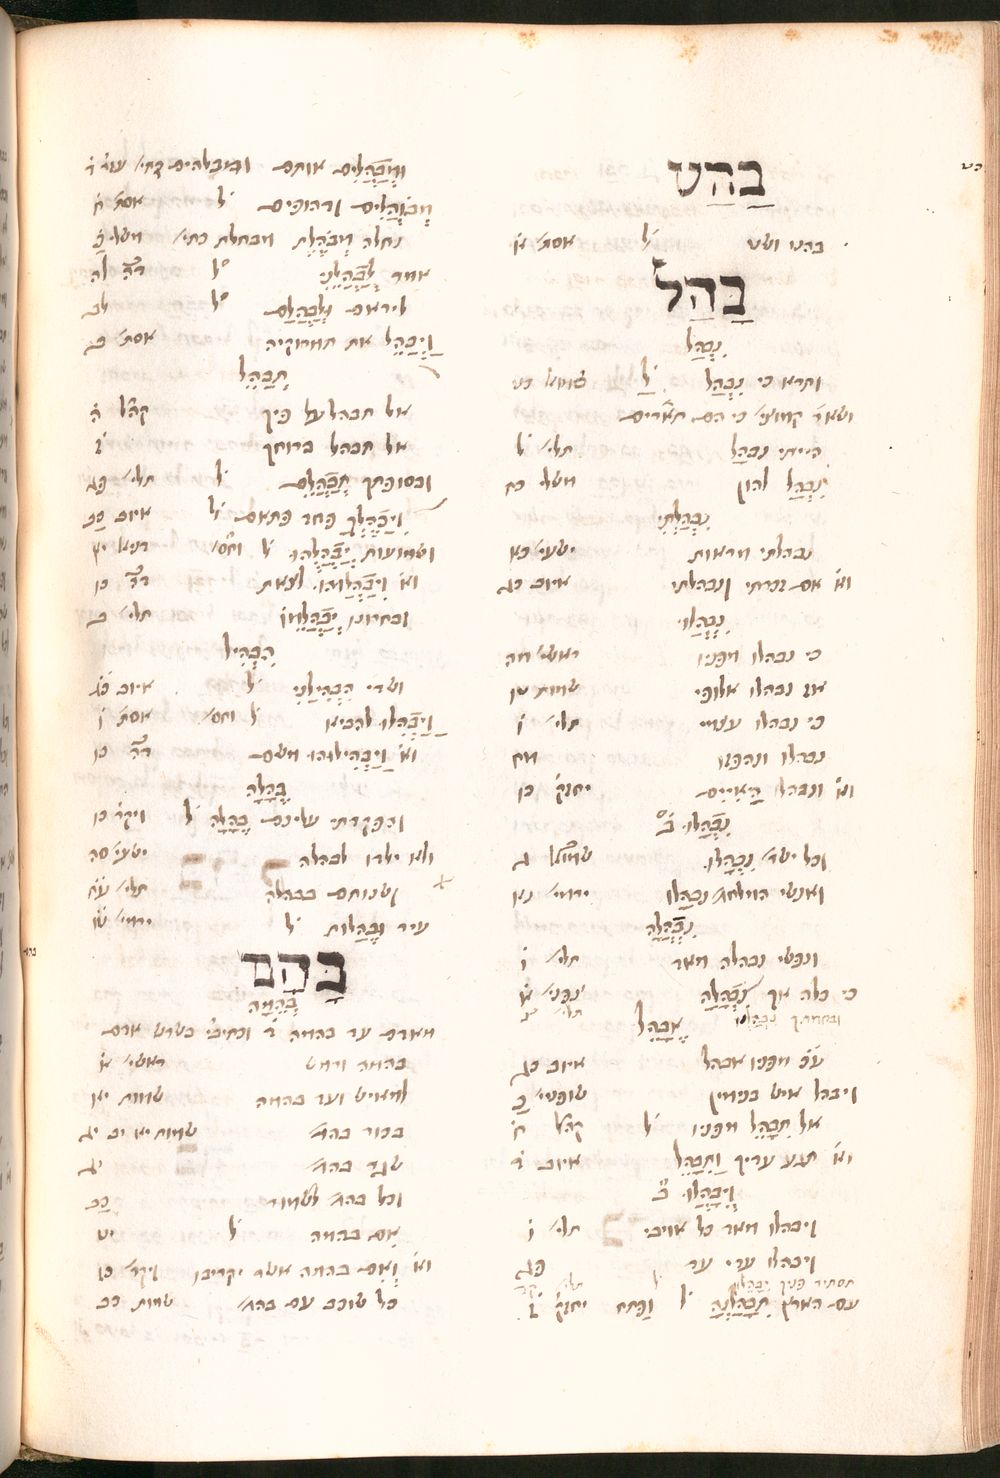 בַהַט
בהט ושש ל׳ אסת׳ א׳
בָהַל
נִבְהַל
ותרא כי נִבְהַל ל׳ שמוא׳ כח
הייתי נבהל תלי׳ ל׳
נִבְהַל להון משלי כח
נִבְהַלְתִי
נבהלתי מראות ישעי׳ כא
וא׳ אם זכרתי ונבהלתי איוב כא
נִבְהֲלוּ
כי נבהלו מפניו ראשי׳ מה
אז נבהלו אלופי שמות טו
כי נבהלו עצמי תלי׳ ו׳
נבהלו ונחפזו מח
וא׳ ונבהלו הָאִיִים יחזק׳ כו
נִבְהָלוּ ב׳
וכל ישר׳ נִבְהָלוּ שמוא׳ ד
ואנשי המלחמ׳ נבהלו ירמי׳ נא
נִבְהֲלָה
ונפשי נבהלה מאד תלי׳ ו׳
אֶבָהֵל
ע״כ מפניו אבהל איוב כג
ויבהל איש בנימין שופטי׳ כ
אל תִבָהֵל מפניו ל׳ קהל׳ ח׳
וא׳ תגע עדיך וַתִבָהֵל איוב ד׳
וְיִבָהֲלוּ ב׳
ויבהלו מאד כל אויבי תלי׳ ו׳
ויבהלו עדי עד פג
תסתיר פניך יבהלון ל׳ תלי׳ קד
עם הארץ תִבָהַלְנָה ל׳ ופתח יחזק׳ ז׳
וּמְבַהֲלִים אותם
מְבוֹהָלִים ודחופים ל׳ אסת׳ ח׳
נחלה מְבֹהֶלֶת מבחלת כתי׳ משלי כ׳
אמר לְבַהֲלֵנִי ל׳ ד״ה לה
ליראם וּלְבַהֲלָם ל׳ לב
וַיְבַהֵל את תמרוקיה אסת׳ ב׳
תְבַהֵל
אל תבהל על פיך קהל׳ ה׳
אל תבהל ברוחך ז׳
ובסופתך תְבַהֲלֵם ל׳ תלי׳ פג
וִיבַהֶלְךָ פחד פתאם ל׳ איוב כב
ושמועות יְבַהֲלֻהוּ ל׳ וחס׳ דניא׳ יא
וא׳ וַיְבַהֲלוּהוּ לצאת ד״ה כו
ובחרונו יְבַהֲלֵמוֹ תלי׳ ב׳
הִבְהִיל
ושדי הִבְהִילַנִי ל׳ איוב כג
וַיַבְהִלוּ להביא ל׳ וחס׳ אסת׳ ו׳
וא׳ וַיַבְהִילוּהוּ משם ד״ה כו
בֶהָלָה
והפקדתי עליכם בֶהָלָה ל׳ ויקר׳ כו
ולא ילדו לבהלה ישעי׳ סה
ושנותם בבהלה תלי׳ עח
עיר ובֶהָלוֹת ל׳ ירמי׳ טו
בָהַם
בְהֵמָה
מאדם עד בהמה ו׳ וכתיבי׳ בשרש אדם
בהמה ורמש ראשי׳ א׳
למאיש ועד בהמה שמות יא
בכור בהמ׳ שמות יא יב יג
שגר בהמ׳ יג
וכל בהמ׳ לשמור כב
אם בהמה ל׳ יט
וא׳ וְאִם בהמה אשר יקריבו ויקר׳ כז
כל שוכב עם בהמ׳ שמות כב